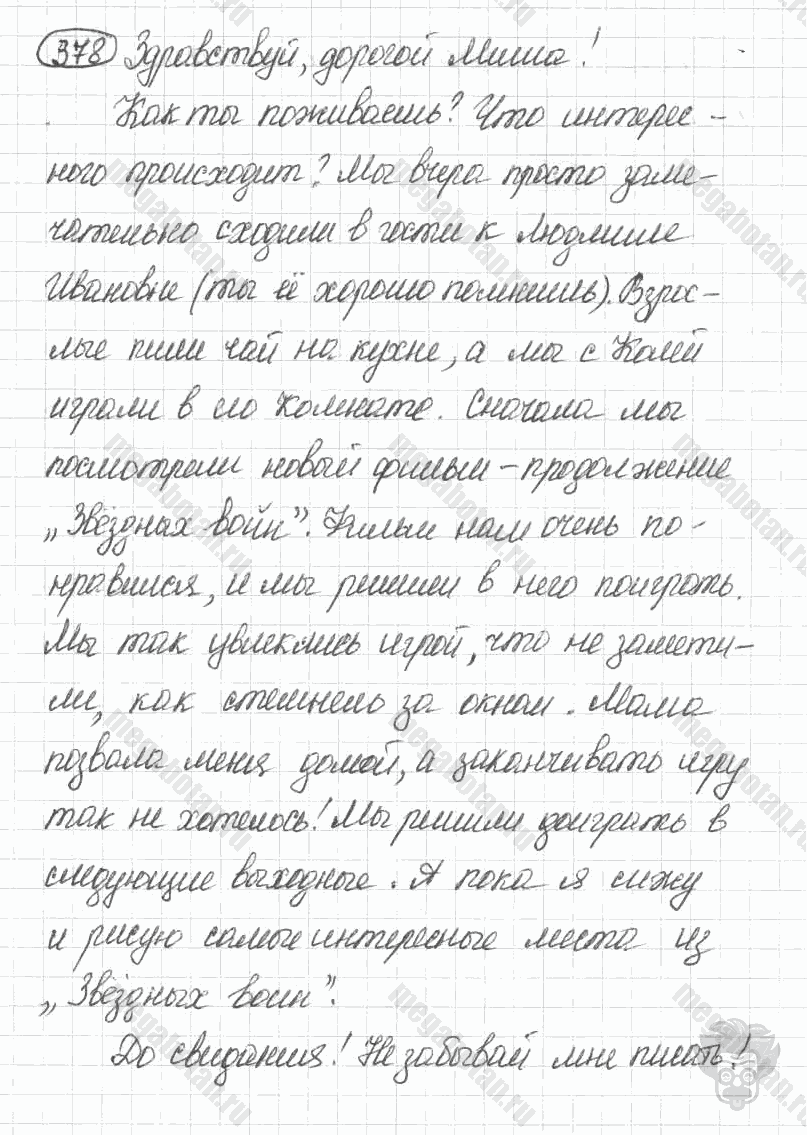 378 Здравствуй, дорогой Миша!
Как ты поживаешь? Что интерес-
ного происходит? Мы вчера просто заме-
чательно сходили в гости к Людмиле
Ивановне (ты её хорошо помнишь). Взрос-
лые пили чай на кухне, а мы с Колей
играли в его комнате. Сначала мы
посмотрели новый фильм – продолжение
„Звёздных войн”. Фильм нам очень по-
нравился, и мы решили в него поиграть.
Мы так увлеклись игрой, что не замети-
ли, как стемнело за окном. Мама
позвала меня домой, а заканчивать игру
так не хотелось! Мы решили доиграть в
следующие выходные. А пока я сижу
и рисую самые интересные места из
„Звёздных войн”.
До свидания! Не забывай мне писать!
megabotan.ru